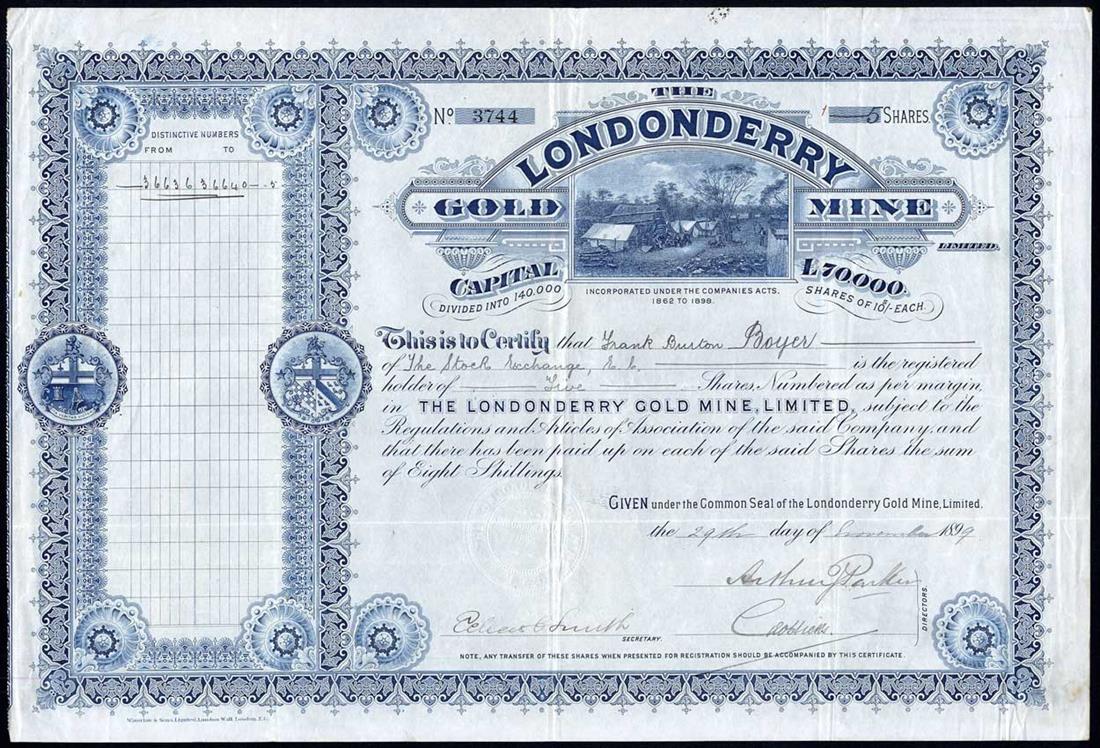 DISTINCTIVE NUMBERS
FROM TO
36636 36640 5
No. 3744
5 SHARES.
THE
LONDONDERRY
GOLD MINE
LIMITED.
CAPITAL £70,000.
DIVIDED INTO 140,000 SHARES OF 10/- EACH.
INCORPORATED UNDER THE COMPANIES ACTS,
1862 TO 1898.
This is to Certify that Frank Burton Boyer
of The Stock Exchange, E.C. is the registered
holder of Five Shares, Numbered as per margin,
in THE LONDONDERRY GOLD MINE, LIMITED, subject to the
Regulations and Articles of Association of the said Company, and
that there has been paid up on each of the said Shares the sum
of Eight Shillings.
GIVEN under the Common Seal of the Londonderry Gold Mine, Limited,
the 29th day of November 1899
Arthur J Parker
DIRECTORS.
Smith
SECRETARY.
NOTE, ANY TRANSFER OF THESE SHARES WHEN PRESENTED FOR REGISTRATION SHOULD BE ACCOMPANIED BY THIS CERTIFICATE.
Waterlow & Sons, Limited, London Wall, London, E.C.